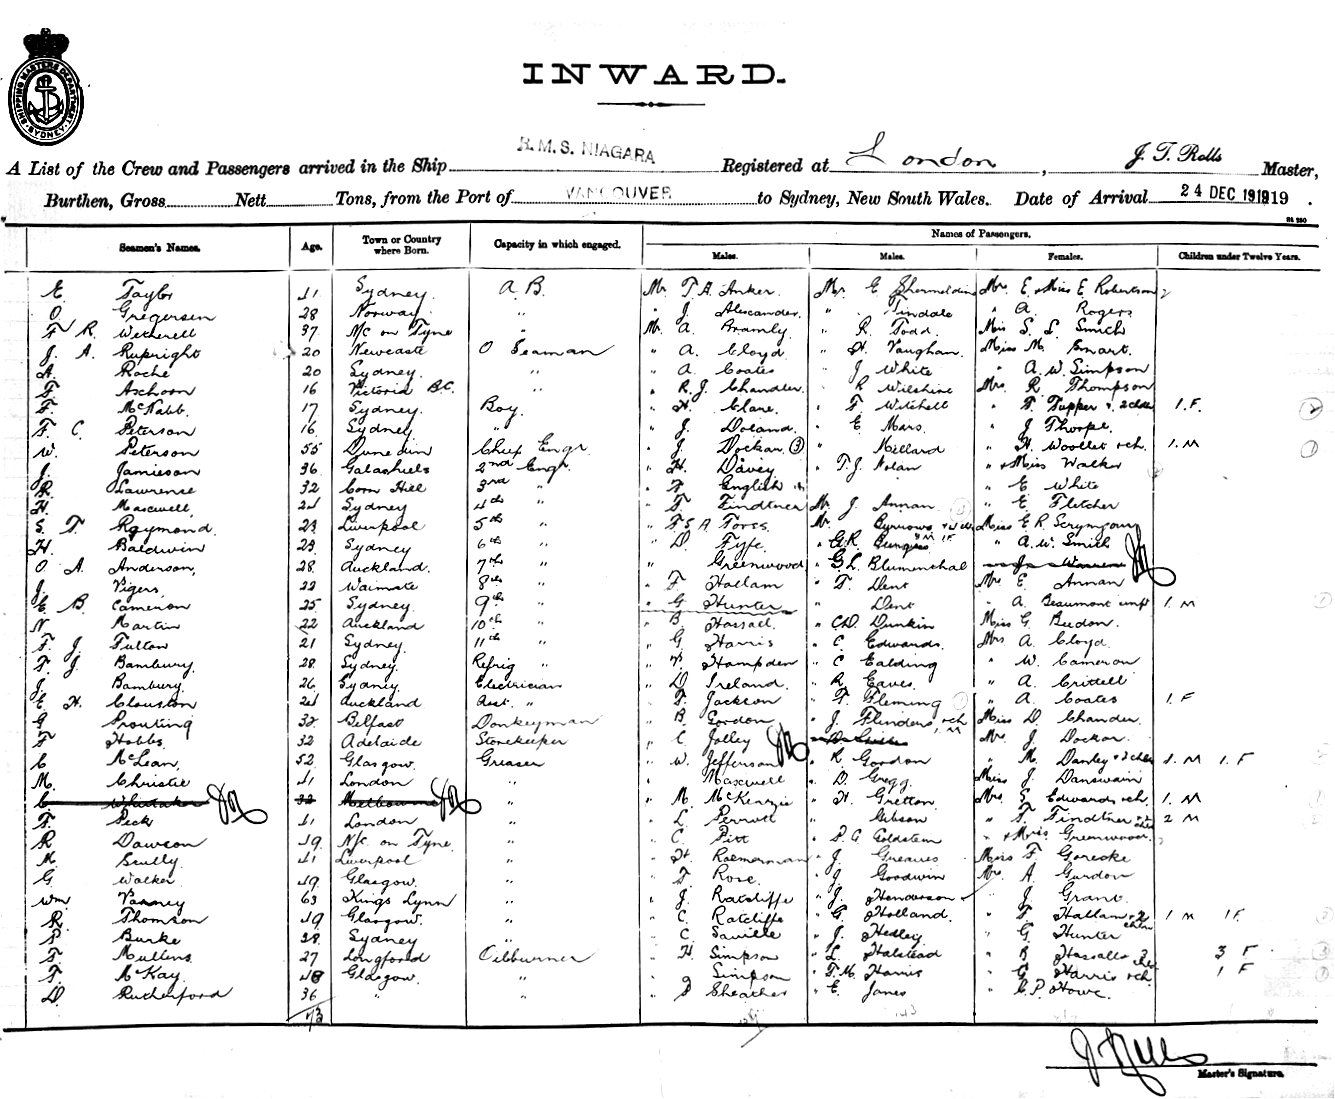 SHIPPING MASTERS DEPARTMENT SYDNEY
INWARD.
A List of the Crew and Passengers arrived in the Ship R.M.S. NIAGARA Registered at London, J. T. Rolls Master,
Burthen, Gross Nett Tons, from the Port of VANCOUVER to Sydney, New South Wales. Date of Arrival 24 DEC 1919 19 .
Names of Passengers.
Seamen's Names. Age. Town or Country where Born. Capacity in which engaged. Males. Males. Females. Children under Twelve Years.
E Taylor 41 Sydney. A.B. Mr T.A. Anker. Mr E Mr E. & Miss E Robertson
O. Gregersen 28 Norway. " " J. Alexander. " Tindale " A. Rogers
F R. Wetherell 37 N/c on Tyne " Mr A. Bramly. " R. Todd. Miss S. L Smith
J. A. Rupright 20 Newcastle O Seaman " A. Cloyd " H. Vaughan. Miss M. Smart.
A. Roche 20 Sydney. " " A. Coates " J White " A. W. Simpson
F. Aschoon 16 Victoria B.C. " " R.J. Chandler. " R Wilshire Mrs. R. Thompson
F. McNabb. 17 Sydney. Boy. " H. Clare. " F Witchell " F. Tupper & 2 chdn 1.F.
F. C. Peterson 16 Sydney " " J. Doland. " E. Mars. " J Thorpe.
W. Peterson 55 Dunedin Chief Engr. " J. Dockar. (3) " Millard " H. Woolley & ch. 1. M
J. Jamieson 36 Galashiels 2nd Engr. " H. Davey " T.J. Nolan " & Miss Walker
R. Lawrence 32 Corn Hill 3rd " " F. English " E White
H. Maxwell, 24 Sydney 4th " " F. Findtner Mr. J. Annan. " E. Fletcher
S. F. Raymond. 23 Liverpool 5th " " F S A Foress. Mr. Burrows Miss E R. Scrymgour
H. Baldwin 23 Sydney 6th " " D. Fyfe. " G.R. Burgess " A. W. Smith
O A. Anderson, 28 Auckland. 7th " " Greenwood " G.L. Blumenthal
J. Vigers, 22 Waimate 8th " " F Hallam " F. Dent Mr. E. Annan
E. B. Cameron 25 Sydney 9th " " G Hunter " Dent " A. Beaumont & inft 1. M
N Martin 22 Auckland 10th " " B. Hassall. " C.D. Dunkin Miss G. Budon.
F. J. Fulton 21 Sydney. 11th " " G. Harris " C. Edwards. Mrs A. Cloyd.
F. J. Bambury. 28 Sydney. Refrig " " F. Hampden " C Ealding " W. Cameron
J. Bambury. 26 Sydney. Electrician " D. Ireland. " R. Eaves. " A. Crittell
E H. Clouston 24 Auckland Asst. " " F. Jackson " F. Fleming " A. Coates 1 F
G. Sprouting 32 Belfast Donkeyman " B. Gordon " J. Flinders & ch Miss D. Chander.
F Hobbs. 32 Adelaide Storekeeper " C Jolley Mr. J. Dockar.
C McLean, 52 Glasgow. Greaser " W. Jefferson " R Gordon " M. Danley & 2 chdn 1. M 1. F
M. Christie 41 London " " Maxwell " D. Gregg. Miss J. Danswain
C. Whitaker 32 Melbourne " " M. McKenzie " H. Gretton. Mrs. S. Edwards & ch. 1. M
F. Peck 41 London " " L. Perrott " Gibson " F. Findtner 2 M
R Dawson 49 N/c on Tyne. " " C. Pitt " P. G. Goldstein " & Miss Greenwood
M. Scully 41 Liverpool " " H. Roemerman " J. Greaves Miss F Gorecke
G. Walker 49 Glasgow. " " F. Rose. " J Goodwin Mrs. A. Gurdon
Wm Varney 63 Kings Lynn " " J. Ratcliffe " J. Henderson " J. Grant.
R. Thomson 49 Glasgow. " " C. Ratcliffe " G. Holland. " F. Hallam & 2 chdn 1 M 1 F.
P Burke 38. Sydney " " C Saville " J. Hedley " G. Hunter
F. Mullens 27 Longford Oilburner " H. Simpson " L. Halstead " B Hassall & 3 3 F
F. McKay 48 Glasgow. " " Simpson " F. M. Harris " G Harris & ch. 1 F
D. Rutherford 36 " " " S Sheather " E. Jones " C. P. Howe.
J T Rolls
Master's Signature.